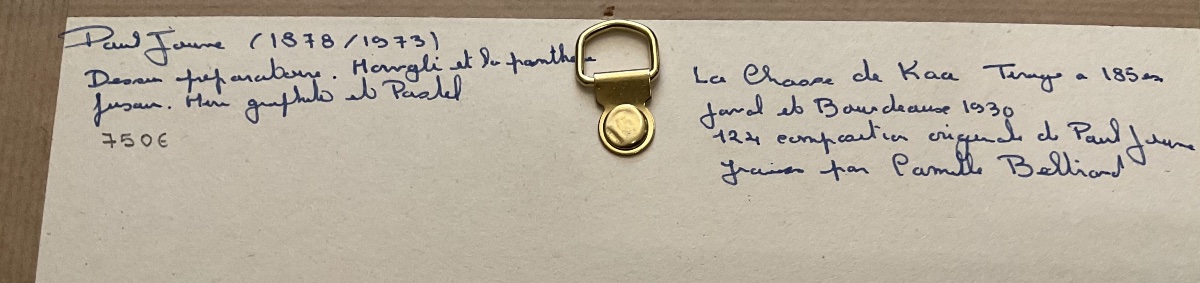 Paul Jouve (1878/1973)
Dessin préparatoire. Mowgli et la panthère
fusain. Mine graphite et Pastel
750€
La Chasse de Kaa Tirage a 185 ex
Javal et Bourdeaux 1930
124 composition originale de Paul Jouve
par Camille Beltrand